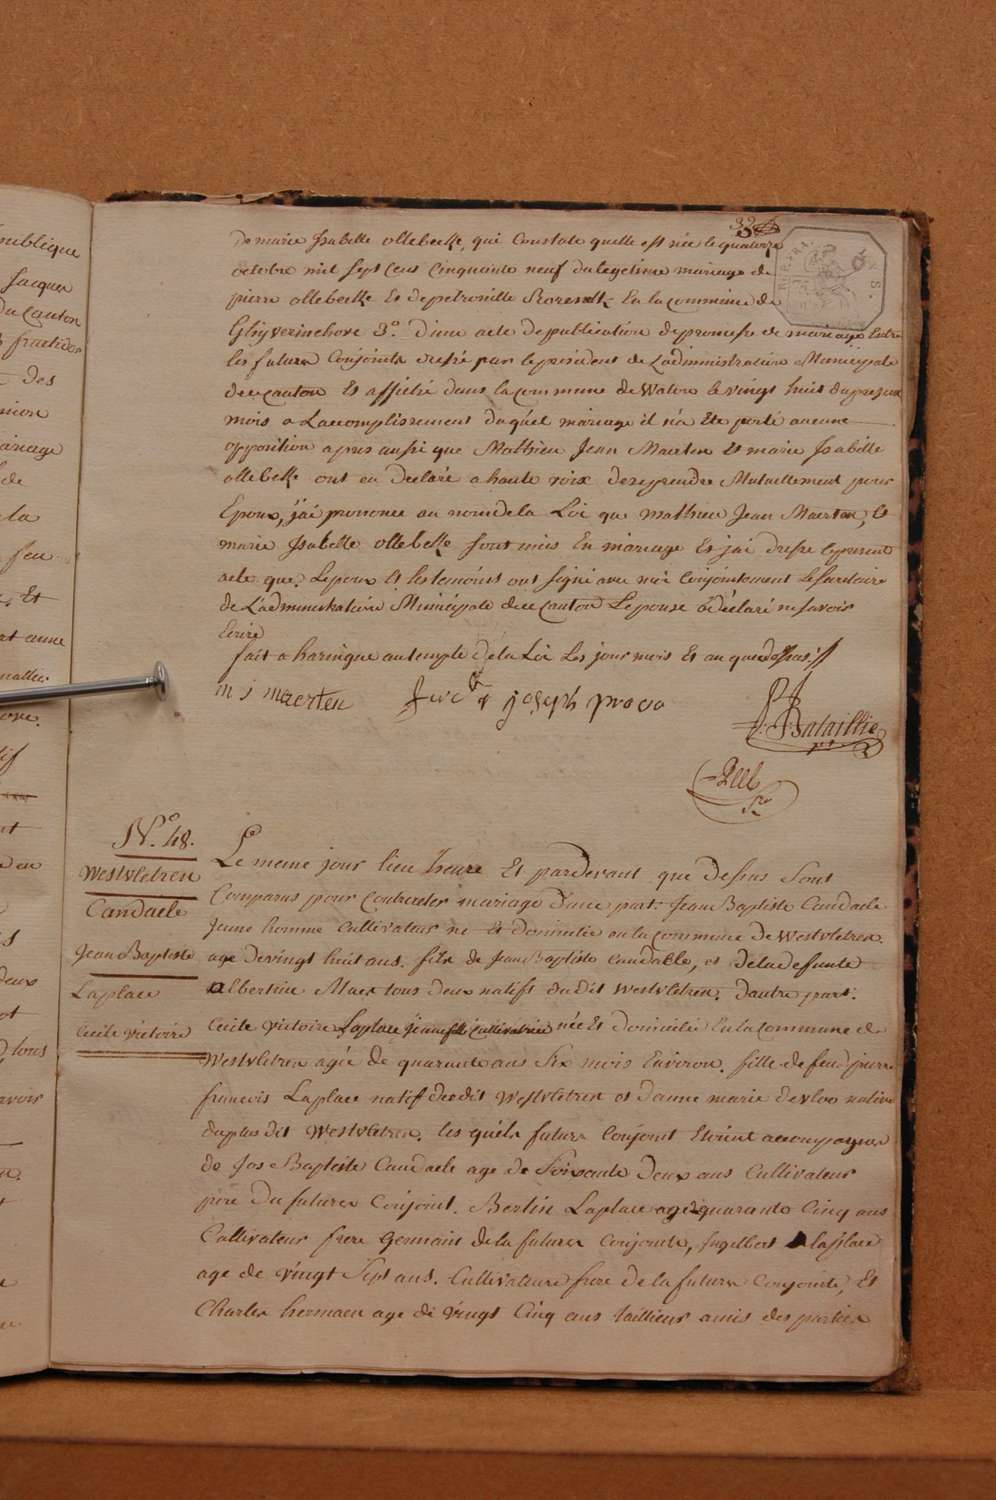 33
de marie Isabelle ollebecke, qui Constate quelle est née le quatorze
octobre mil sept Cens Cinquante neuf du legetime mariage de
pierre ollebecke Et de petronille En la Commune de
Ghyverinchove 3.° D'une acte de publication de promesse de mariage Entre
les futurs Conjoints dressé par le president de L'administration Municipale
de ce Canton Et affiché dans la Commune de Watou le vingt huit du present
mois a Laccomplissement duquel mariage il n'a Ete porté aucune
opposition apres aussi que Mathieu Jean Maerten Et marie Isabelle
ollebecke ont eu Declaré a haute voix de se prendre Mutuellement pour
Epoux, j'ai prononcé au nom de la Loi que mathieu Jean Maerten, Et
marie Isabelle ollebecke sont unis En mariage Et j'ai dressé le present
acte que Lepoux Et les temoins ont signé avec moi Conjointement Le Secretaire
de L'administration Municipale de ce Canton Lepouse a déclaré ne savoir
Ecrire
fait a haringue au temple de la Loi Les jour mois Et an que dessus
m j maerten joseph provo
Bataillie
N.° 48.
Westvletren
Candaele
Jean Baptiste
Laplace
Cecile victoire
Le meme jour lieu heure Et pardevant que dessus Sont
Comparus pour Contracter mariage D'une part: Jean Baptiste Candaele
Jeune homme Cultivateur né Et domicilié en la Commune de Westvletren.
agé De vingt huit ans. fils de Jean Baptiste Candaele, et de la defunte
albertine Maes tous deux natifs du dit Westvletren. D'autre part:
Cecile victoire Laplace Jeune fille Cultivatrice née Et domiciliée En la Commune de
Westvletren agée de quarante ans Six mois Environ. fille de feu pierre
francois Laplace natif de dit Westvletren et d'anne marie devloo native
du plus dit Westvletren. les quels futurs Conjoint Etoient accompagnes
de Jos. Baptiste Candaele age de Soixante Deux ans Cultivateur
pere du futures Conjoint. Bertin Laplace age de quarante Cinq ans
Cultivateur frere Germain de la futures Conjointe, Ingelbert laplace
age de vingt Sept ans. Cultivateur frere de la futurs Conjointe, Et
Charles hermaen age de vingt Cinq ans tailleur amis des parties